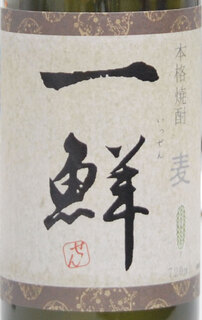 本格焼酎
麦
一鮮
いっせん
せん
720ml